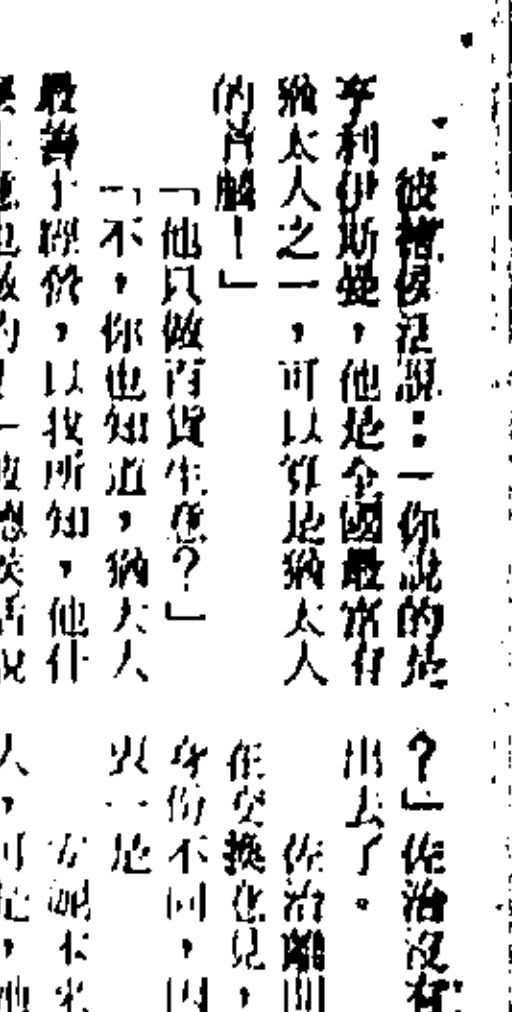 彼得侯活說：「你說的是
亨利伊斯曼，他是全國最富有
猶太人之一，可以算是猶太人
的首腦！」
「他只做百貨生意？」
「不，你也知道，猶太人
最善于經營，以我所知，他什
？」佐治沒有
出去了。
佐治離開
在交換意見，
身份不同，因
方妮本來